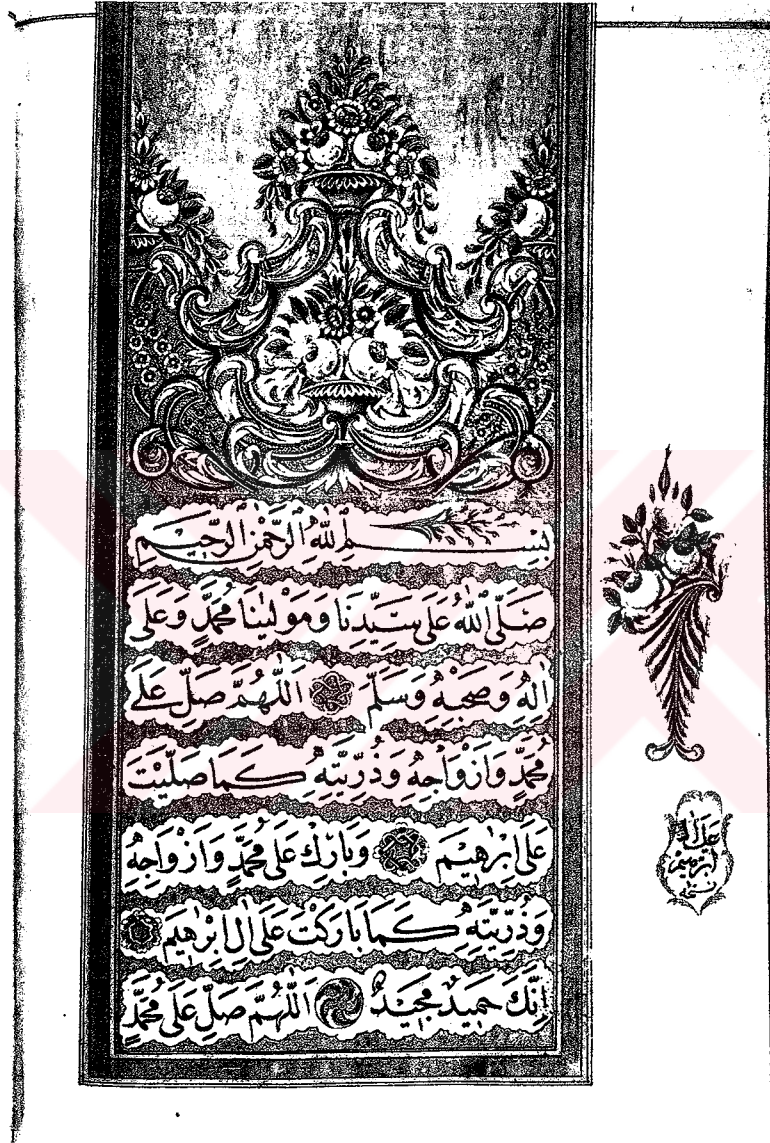 بِسْمِ اللّٰهِ الرَّحْمٰنِ الرَّحِيمِ
صَلَّى اللّٰهُ عَلٰى سَيِّدِنَا وَمَوْلٰينَا مُحَمَّدٍ وَعَلٰى
اٰلِهٖ وَصَحْبِهٖ وَسَلَّمَ اَللّٰهُمَّ صَلِّ عَلٰى
مُحَمَّدٍ وَاَزْوَاجِهٖ وَذُرِّيَّتِهٖ كَمَا صَلَّيْتَ
عَلٰى اِبْرٰهِيمَ وَبَارِكْ عَلٰى مُحَمَّدٍ وَاَزْوَاجِهٖ
وَذُرِّيَّتِهٖ كَمَا بَارَكْتَ عَلٰى اٰلِ اِبْرٰهِيمَ
اِنَّكَ حَمِيدٌ مَجِيدٌ اَللّٰهُمَّ صَلِّ عَلٰى مُحَمَّدٍ
عَلٰى اٰلِ
اِبْرٰهِيمَ